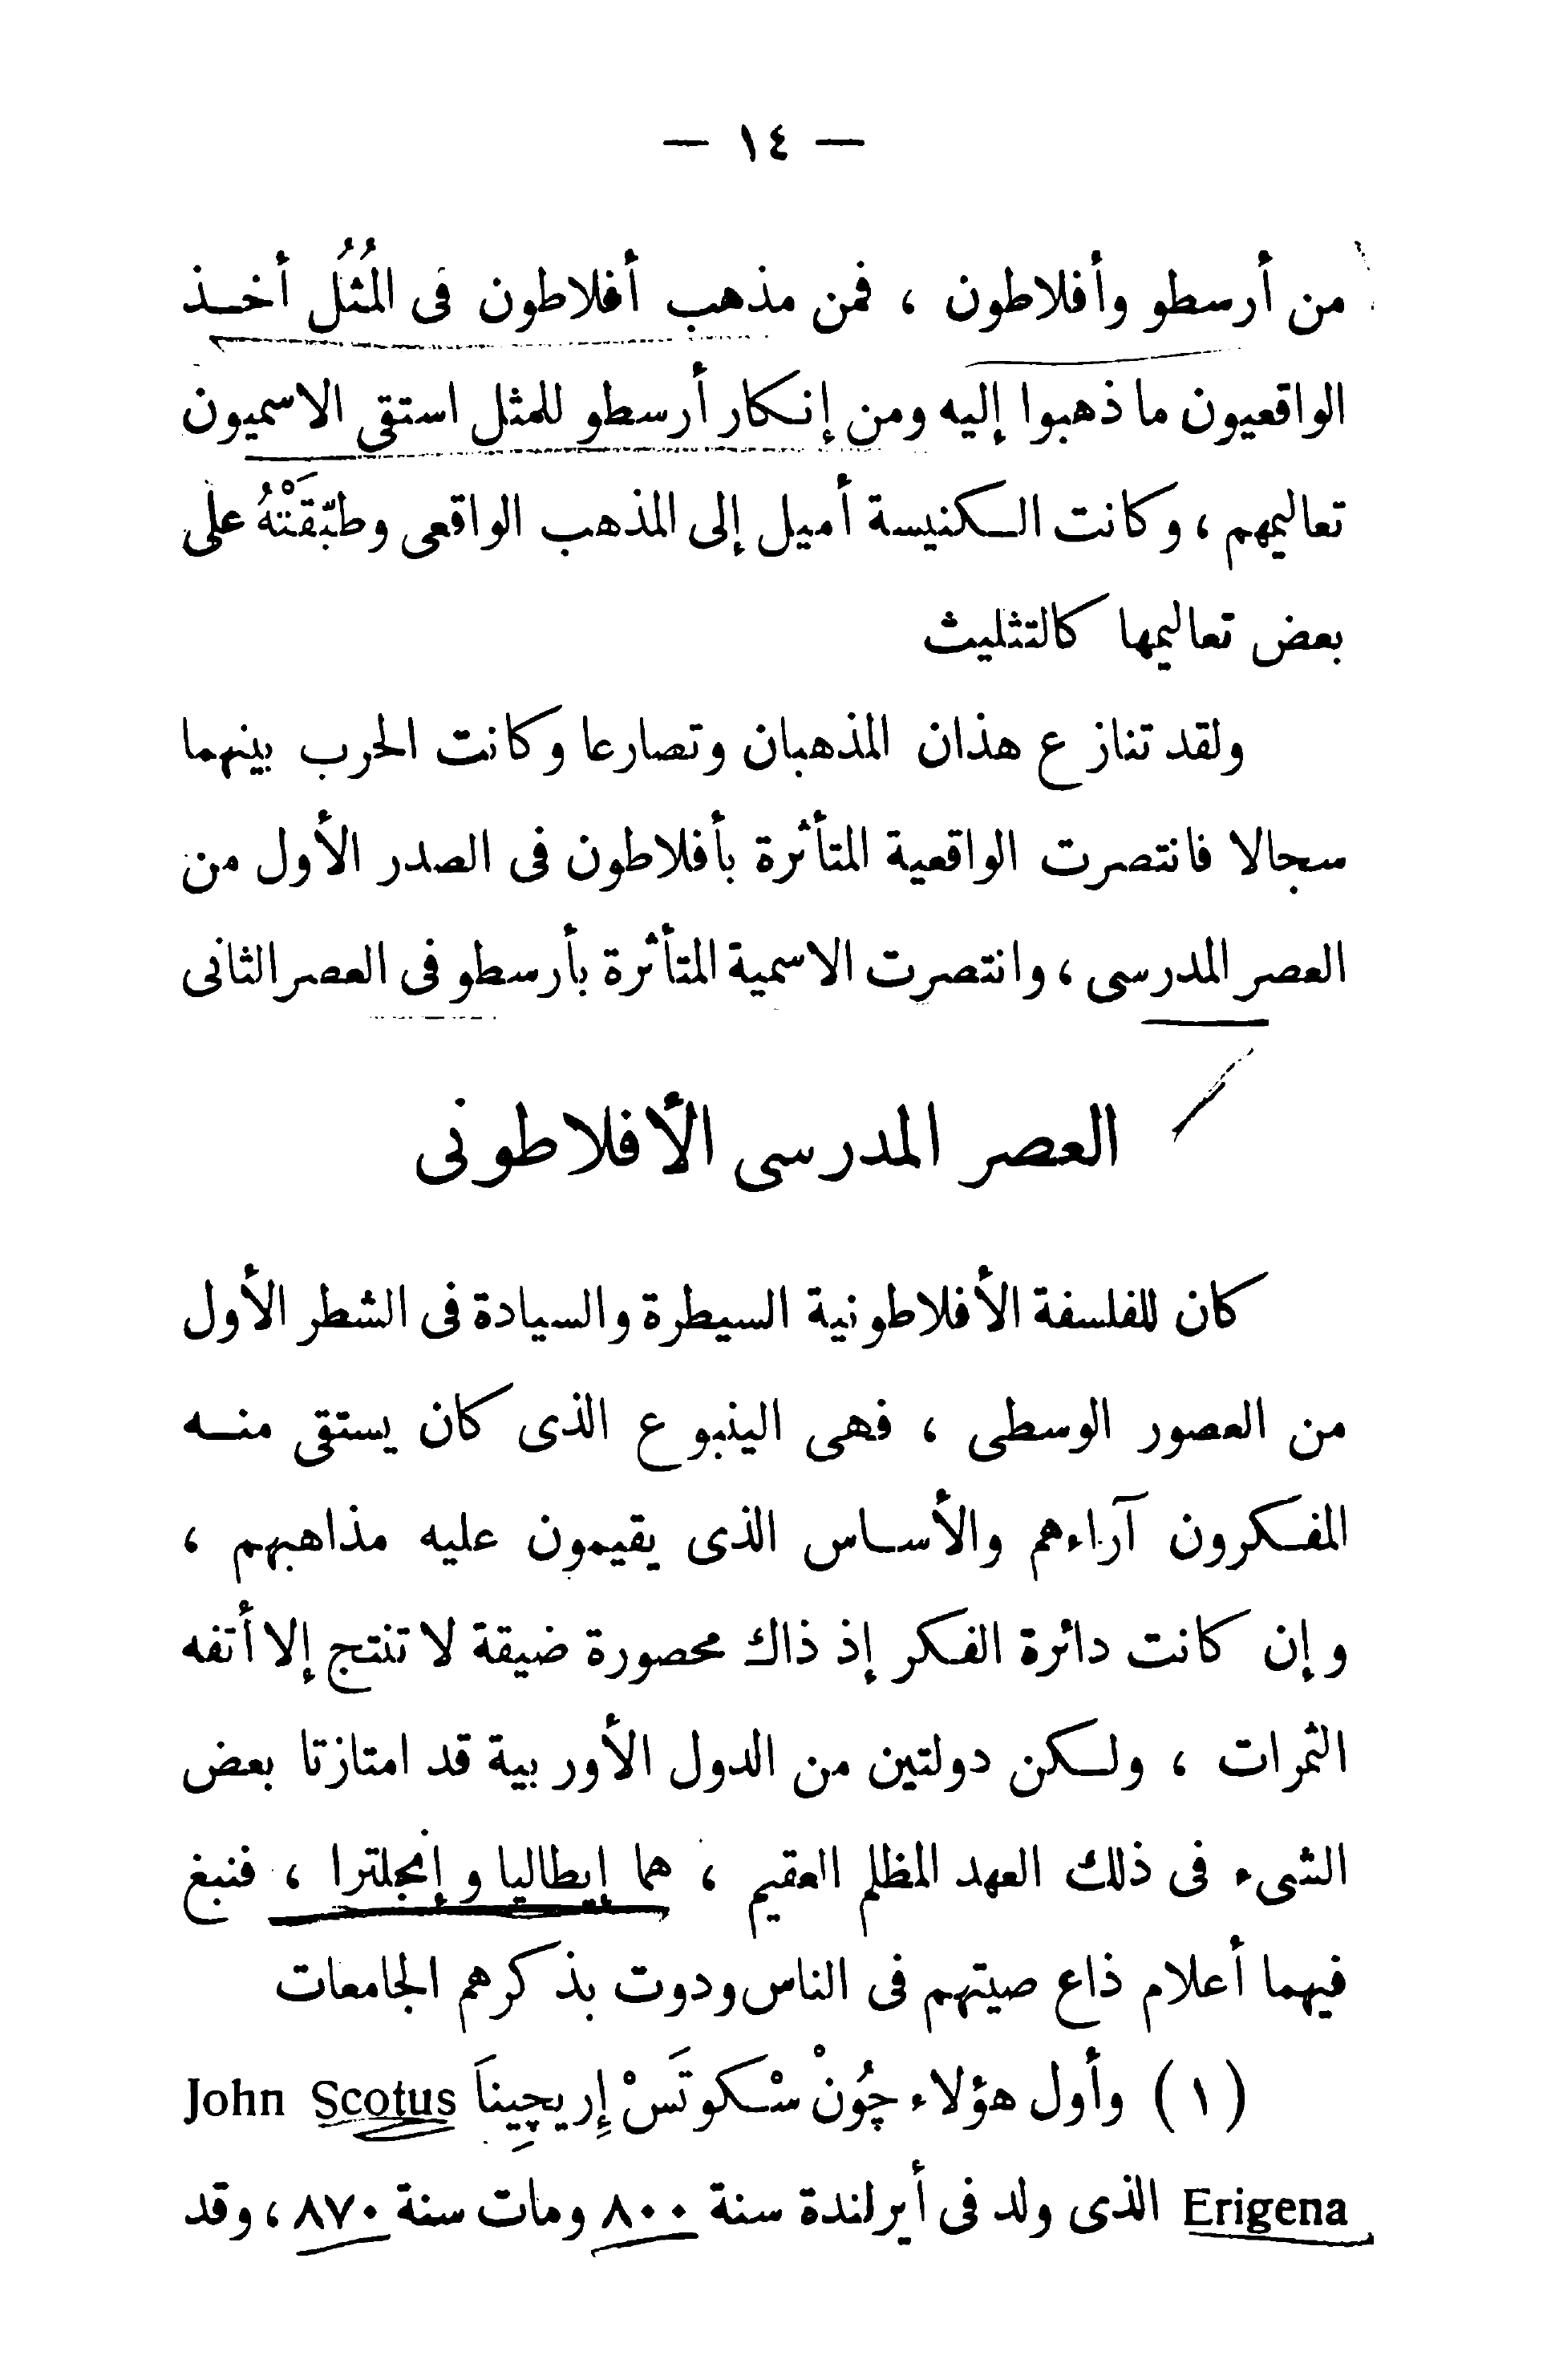 — ١٤ —
من أرسطو وأفلاطون ، فمن مذهب أفلاطون فى المُثُل أخــذ
الواقعيون ما ذهبوا إليه ومن إنـكار أرسطو للمثل استقى الاسميون
تعاليمهم ، وكانت الـكنيسة أميل إلى المذهب الواقعى وطبّقَتْهُ على
بعض تعاليمها كالتثليث
ولقد تنازع هذان المذهبان وتصارعا وكانت الحرب بينهما
سجالا فانتصرت الواقعية المتأثرة بأفلاطون فى الصدر الأول من
العصر المدرسى ، وانتصرت الاسمية المتأثرة بأرسطو فى العصر الثانى
العصر المدرسى الأفلاطونى
كان للفلسفة الأفلاطونية السيطرة والسيادة فى الشطر الأول
من العصور الوسطى ، فهى الينبوع الذى كان يستقى منــه
المفـكرون آراءهم والأسـاس الذى يقيمون عليه مذاهبهم ،
وإن كانت دائرة الفـكر إذ ذاك محصورة ضيقة لا تنتج إلا أتفه
الثمرات ، ولـكن دولتين من الدول الأوربية قد امتازتا بعض
الشىء فى ذلك العهد المظلم العقيم ، هما إيطاليا وإنجلترا ، فنبغ
فيهما أعلام ذاع صيتهم فى الناس ودوت بذكرهم الجامعات
( ١ ) وأول هؤلاء چُونْ سْـكوتَسْ إِريچِينَا John Scotus
Erigena الذى ولد فى أيرلندة سنة ٨٠٠ ومات سنة ٨٧٠ ، وقد